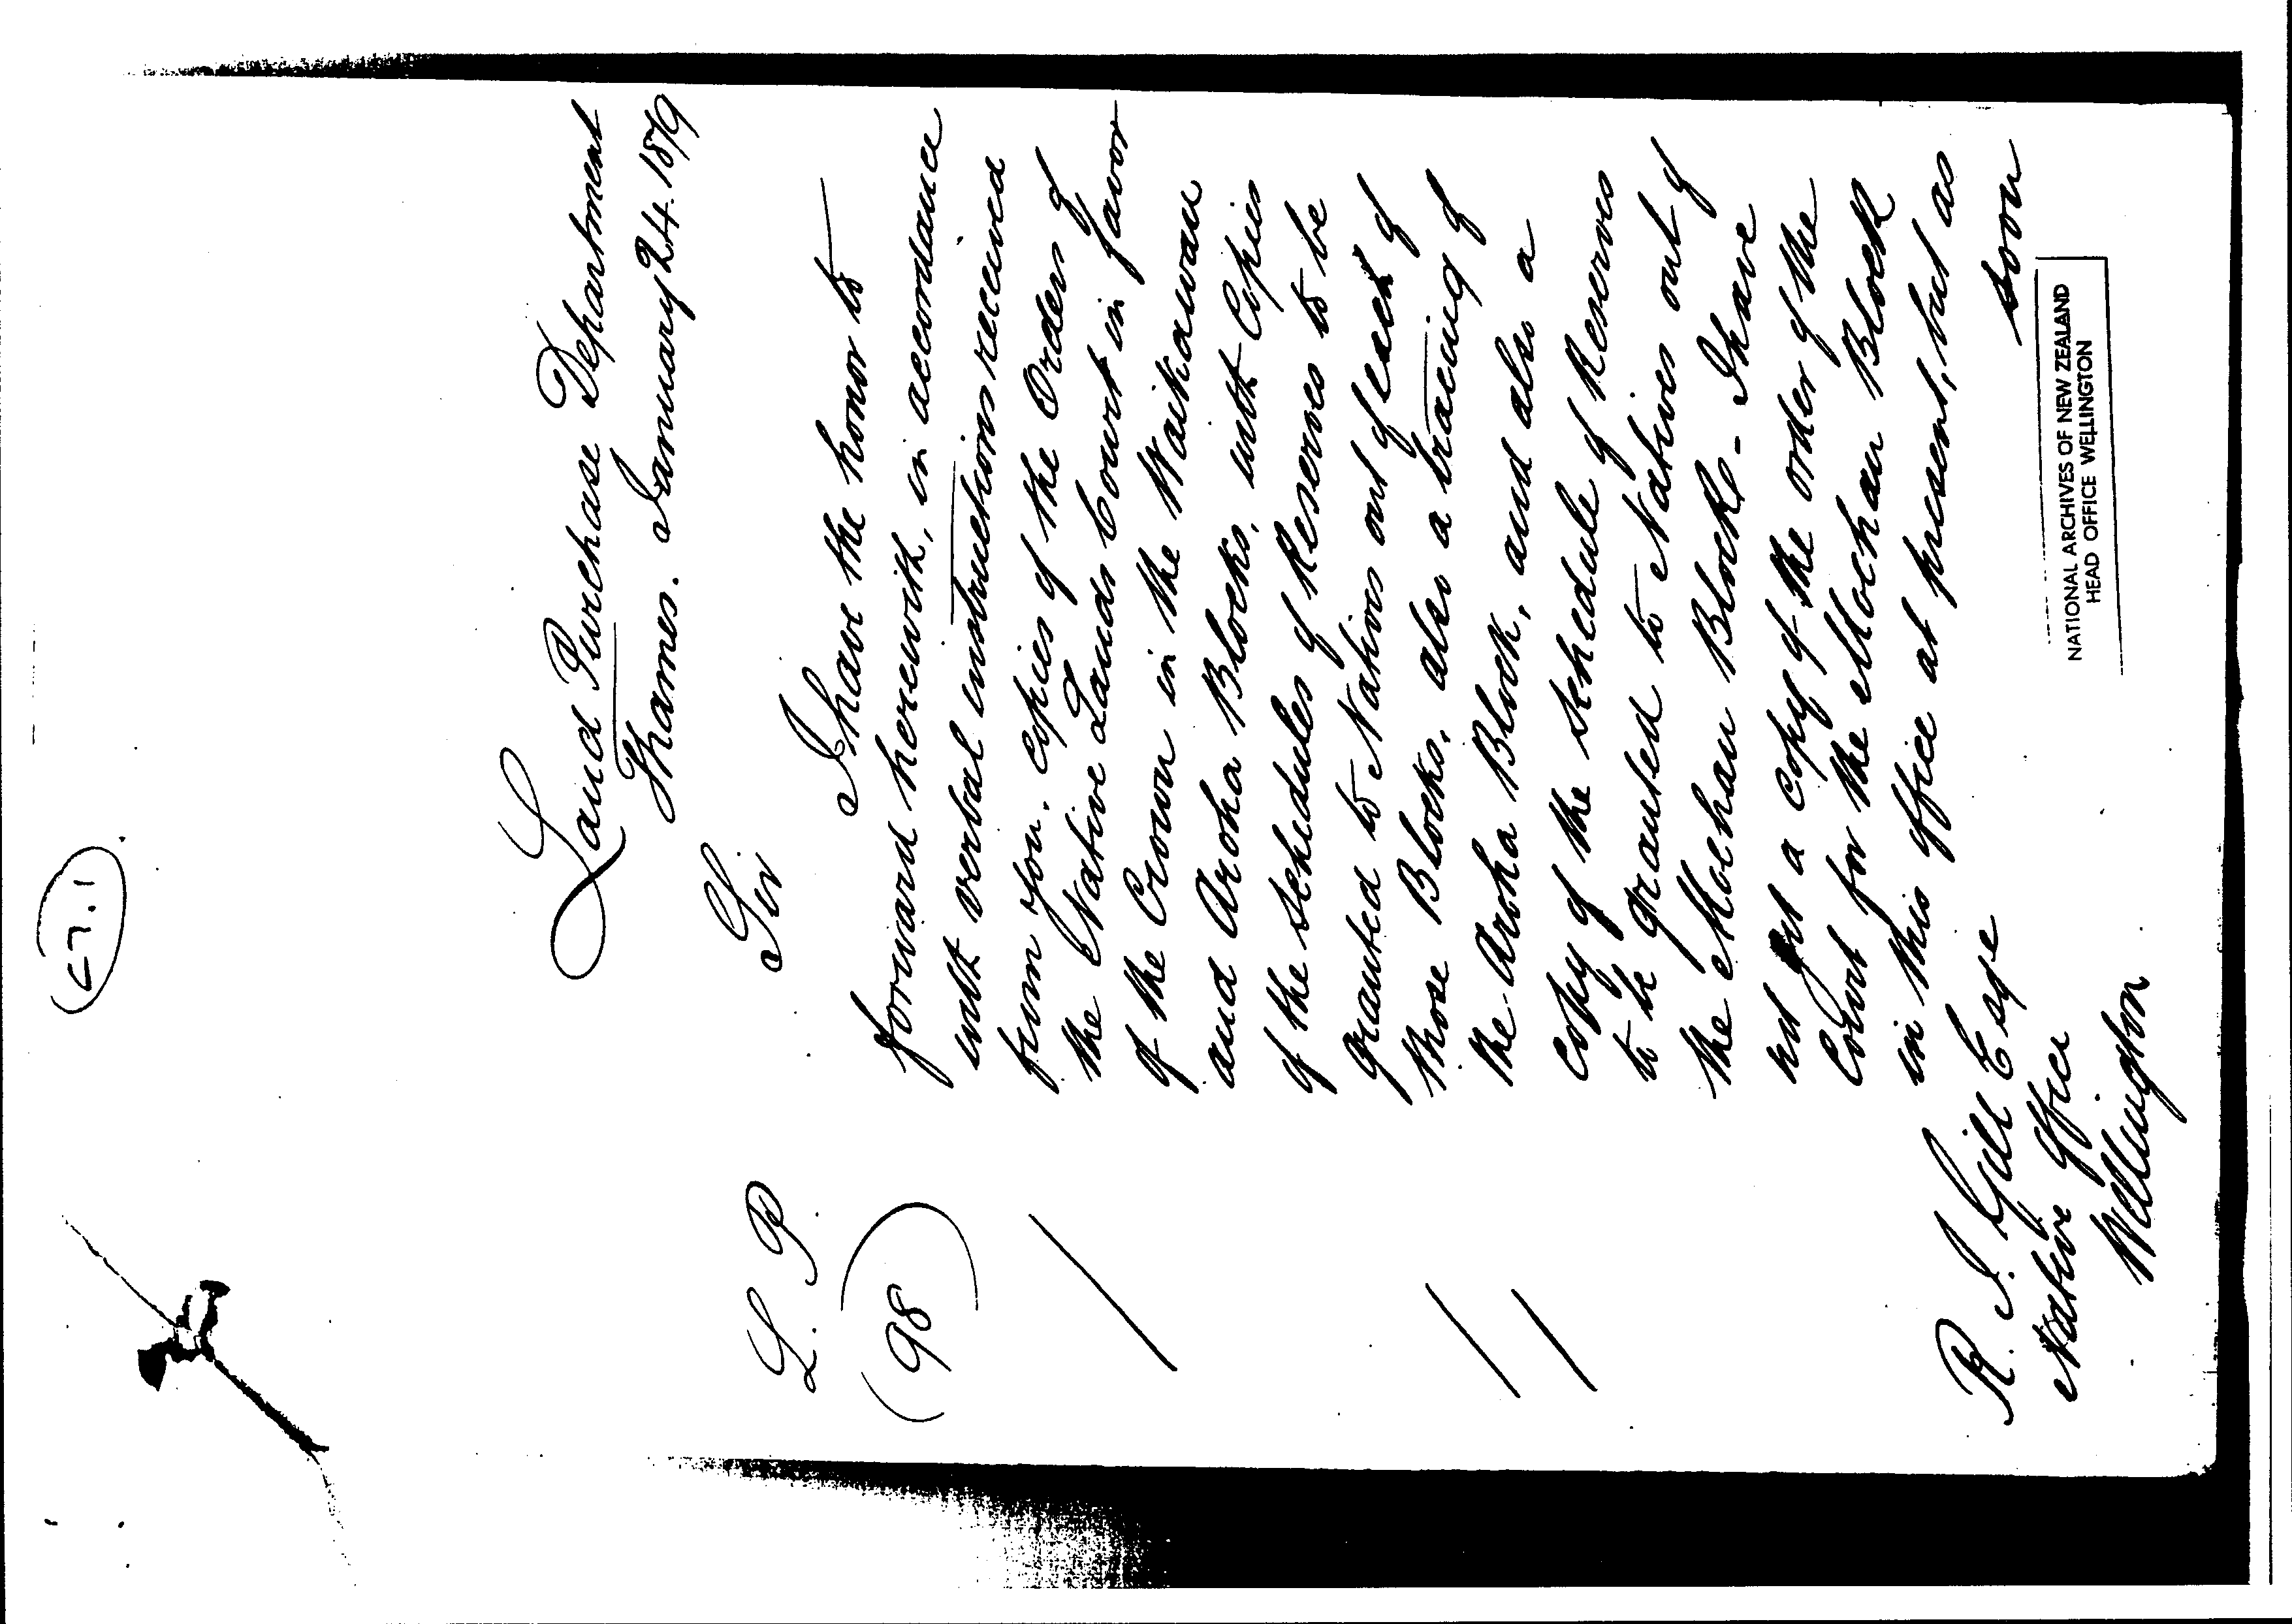 C7.1
Land Purchase Department
Thames. January 24. 1879
L. P.
(98)
Sir
I have the honor to
forward herewith, in accordance
with verbal instructions received
from you, copies of the Orders of
the Native Lands Court in favor
of the Crown in the Waikawau
and Aroha Blocks, with Copies
of the schedules of Reserves to be
granted to Natives out of each of
those Blocks, also a tracing of
the Aroha Block, and also a
copy of the schedule of Reserves
to be granted to Natives out of
the Moehau Block - I have
not got a copy of the order of the
Court for the Moehau Block
in this office at present, but as
soon
R. J. Gill Esqre
Native Office
Wellington
NATIONAL ARCHIVES OF NEW ZEALAND
HEAD OFFICE WELLINGTON